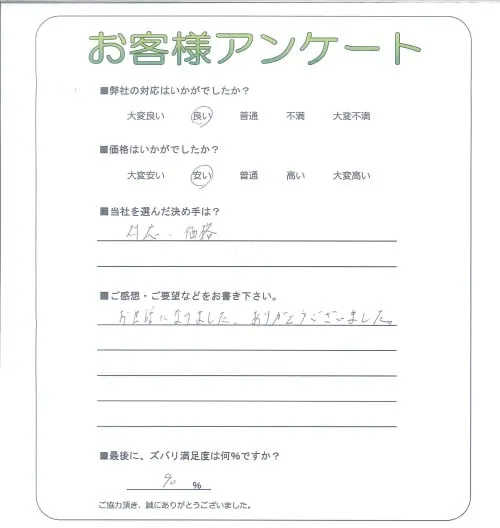 お客様アンケート
■弊社の対応はいかがでしたか?
大変良い 良い 普通 不満 大変不満
■価格はいかがでしたか?
大変安い 安い 普通 高い 大変高い
■当社を選んだ決め手は?
対応・価格
■ご感想・ご要望などをお書き下さい。
お世話になりました、ありがとうございました。
■最後に、ズバリ満足度は何%ですか?
90 %
ご協力頂き、誠にありがとうございました。